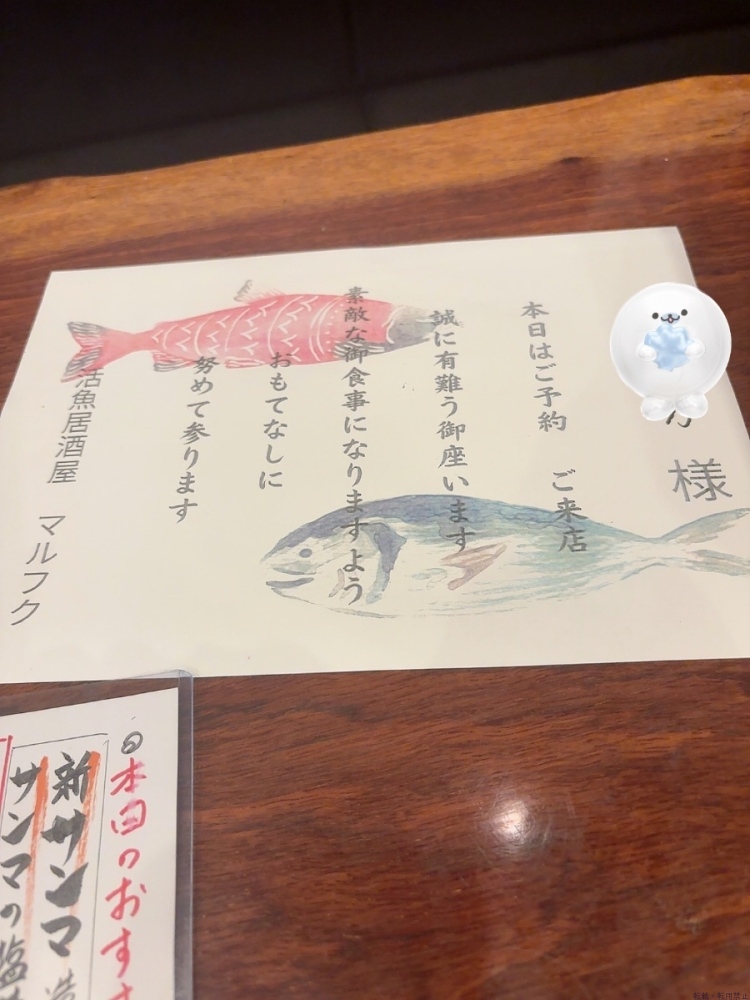 様
本日はご予約 ご来店
誠に有難う御座います
素敵な御食事になりますよう
おもてなしに
努めて参ります
活魚居酒屋 マルフク
本日のおすす
新サンマ
サンマの塩